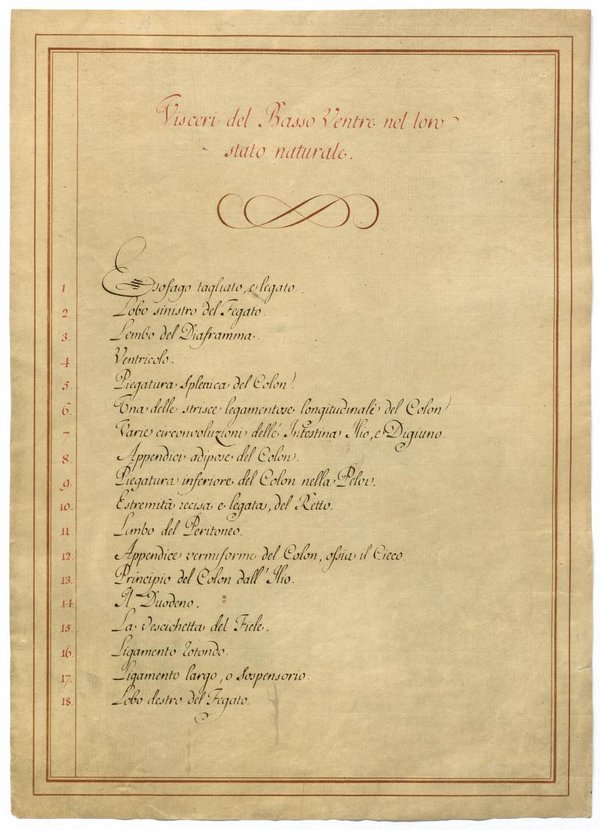 Visceri del Basso Ventre nel loro
stato naturale.
1 Esofago tagliato, e legato.
2. Lobo sinistro del Fegato.
3. Lembo del Diaframma.
4. Ventricolo.
5. Piegatura splenica del Colon.
6. Una delle strisce legamentose longitudinali del Colon
7. Varie circonvoluzioni delle Intestina Ilio, e Digiuno.
8. Appendici adipose del Colon.
9. Piegatura inferiore del Colon nella Pelvi.
10. Estremità recisa e legata, del Retto.
11. Limbo del Peritoneo.
12. Appendice vermiforme del Colon, ossia il Cieco.
13. Principio del Colon dall' Ilio.
14. Il Duodeno.
15. La Vescichetta del Fiele.
16. Ligamento rotondo.
17. Ligamento largo, o sospensorio.
18. Lobo destro del Fegato.